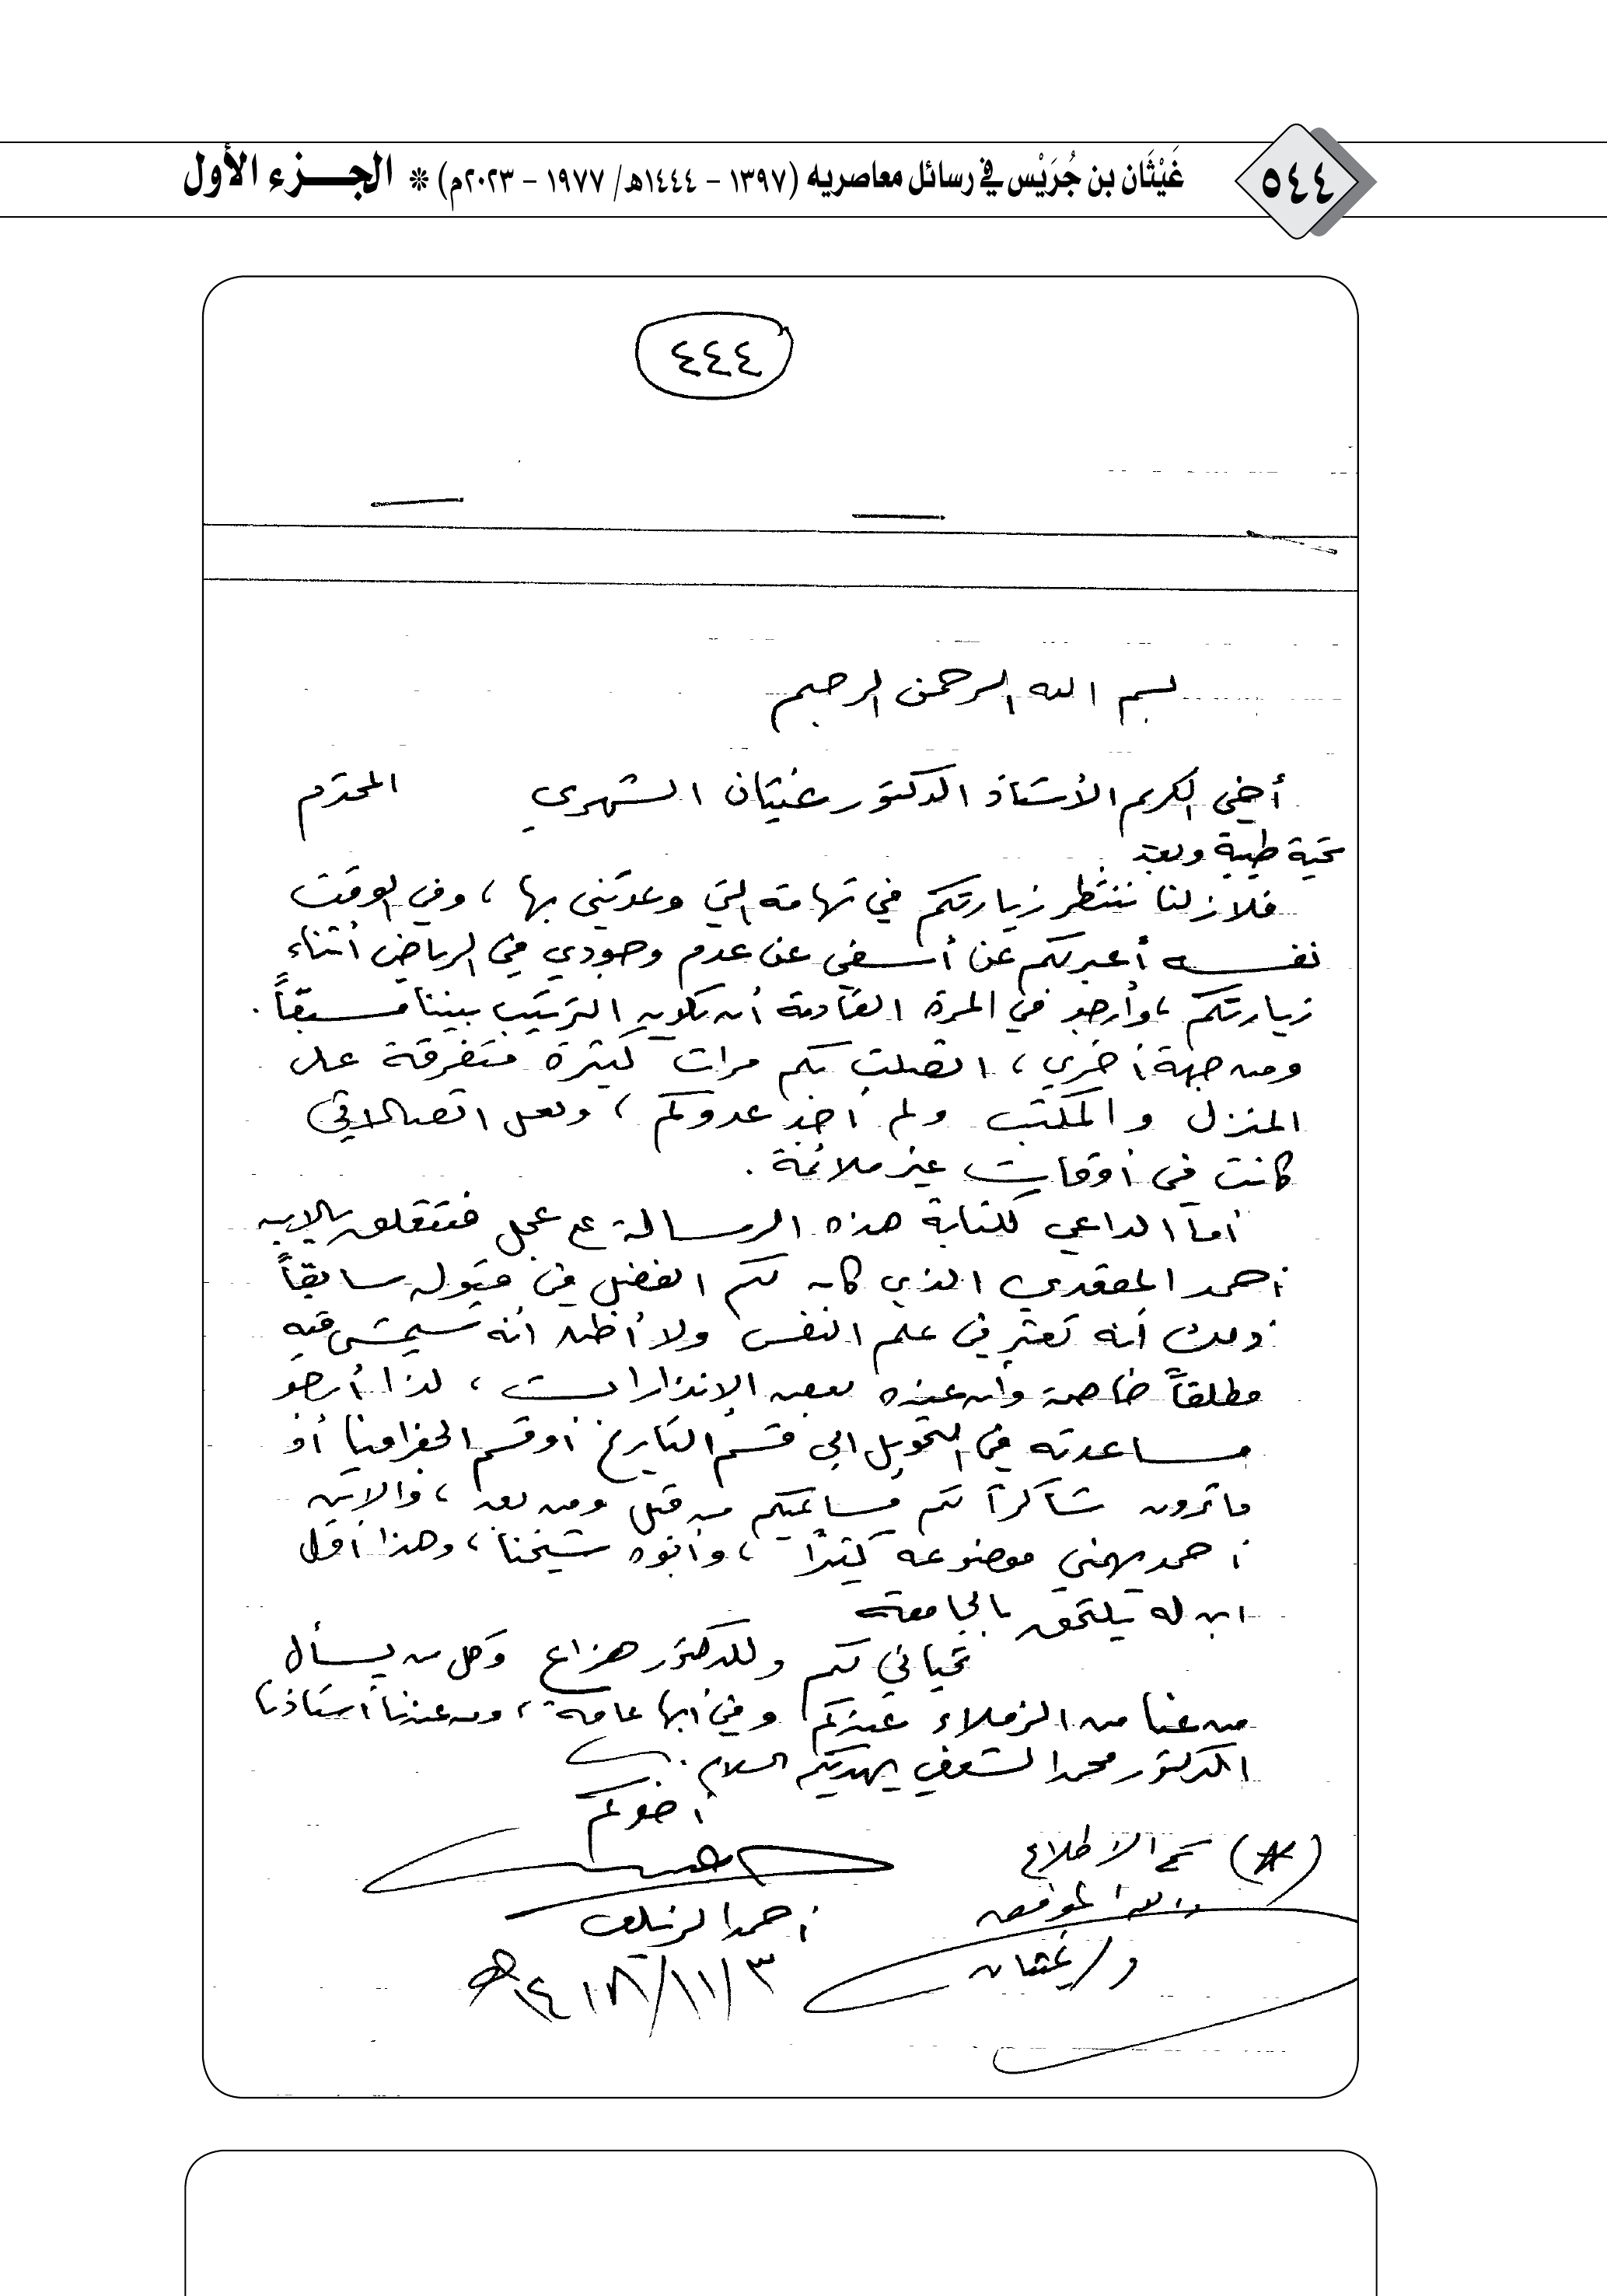 ٥٤٤
غَيْثَان بن جُرَيْس في رسائل معاصريه (١٣٩٧ - ١٤٤٤هـ/ ١٩٧٧ - ٢٠٢٣م) * الجزء الأول
٤٤٤
بسم الله الرحمن الرحيم
أخي الكريم الأستاذ الدكتور غيثان الشهري المحترم
تحية طيبة وبعد
فلازلنا ننتظر زيارتكم في تهامة التي وعدتني بها ، وفي الوقت
نفسه أعبر لكم عن أسفي عن عدم وجودي في الرياض أثناء
زيارتكم ، وأرجو في المرة القادمة أن يكون الترتيب بيننا مسبقاً .
ومن جهة أخرى ، اتصلت بكم مرات كثيرة متفرقة على
المنزل والمكتب ولم أجد ، ولعل اتصالاتي
كانت في أوقات غير ملائمة .
أما الداعي لكتابة هذه الرسالة على عجل فتتعلق بالابن
أحمد الذي كان لكم الفضل في قبوله سابقاً
ذلك أنه تعثر في علم النفس ولا أظن أنه سيمشي فيه
مطلقاً خاصة وأن عنده بعض الإنذارات ، لذا أرجو
مساعدته في التحويل إلى قسم التاريخ أو قسم الجغرافيا أو
ما ترون شاكراً لكم مساعيكم من قبل ومن بعد ، والابن
أحمد يهمني موضوعه كثيراً ، وأبوه شيخنا ، وهذا أول
ابن له يلتحق بالجامعة
تحياتي لكم وللدكتور هزاع وكل من يسأل
عنا من الزملاء عندكم وفي أبها عامة ، ومن عندنا أستاذنا
الدكتور محمد الشعفي يهديكم السلام .
أخوكم
أحمد الزيلعي
٣/١١/١٤١٨هـ
(*) تم الاطلاع
والله الموفق
د/ غيثان